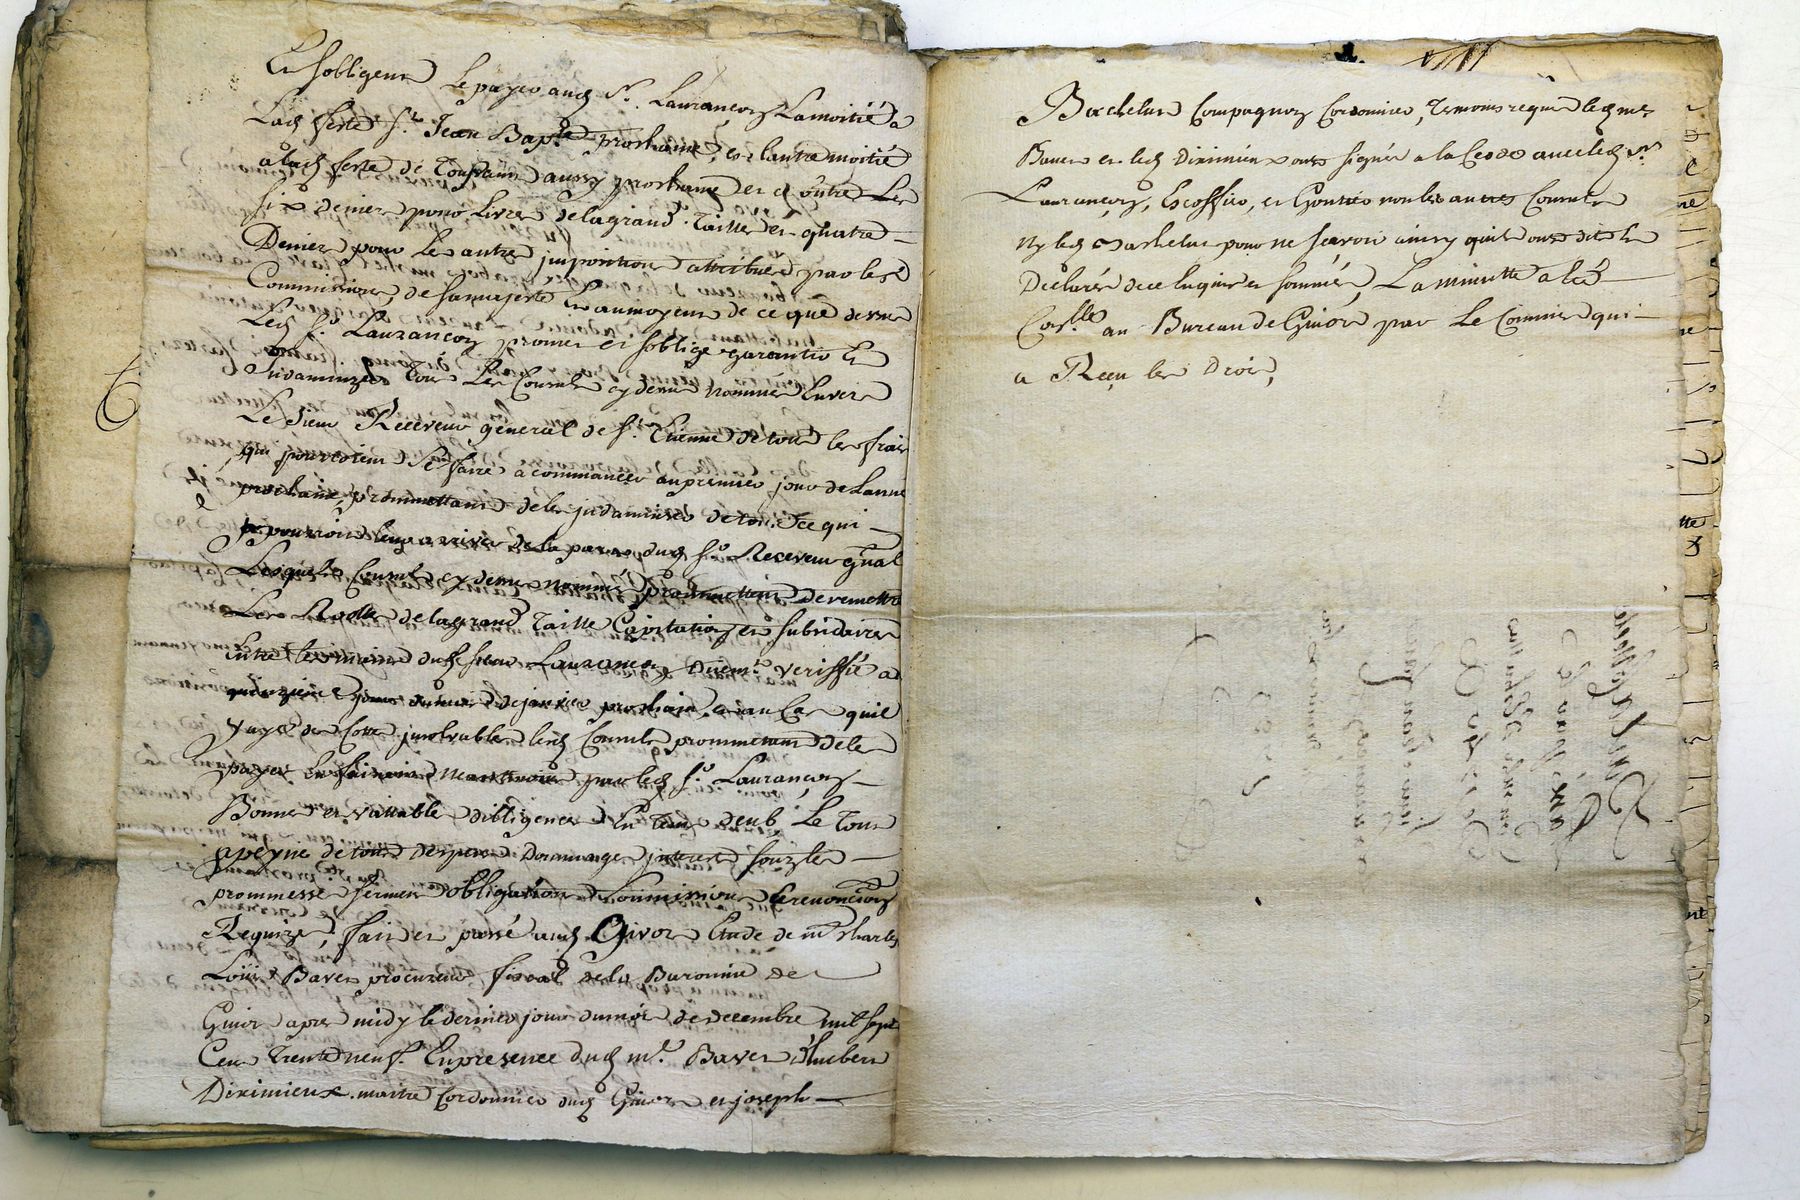 Et sobligent Le payer aud Sr. Laurançon La moitié a
Lad feste St Jean Bapte prochaine, et lautre moitié
a lad feste de Toussaint aussy prochaine et outre Les
six deniers pour Livre de la grand Taille et quatre
Deniers pour Les autres impositions attribués par les
Commissions de sa majesté Et au moyen de ce que dessus
Led Sr Laurançon promet et soblige garantir Et
indamnizer Tous Les Consuls cy dessus nommés Envers
Le Sieur Receveur general de St. Etienne de tous les frais
qui pourroient Se faire a commancer au premier jour de Lanné
prochaine, promettant de les indamniser de tout ce qui
pourroit leur arriver de la part dud Sr Receveur gnal
Lesquels Consuls cy dessus nommés promettent de remettre
Les Rolles de la grand Taille Capitation et subsidaires
Entre les mains dud sieur Laurançon Duemt veriffié au
quinzieme jour du mois de janvier prochain et au Cas quil
y aye des Cottes insolvables lesd Consuls promettent de les
payer En faisant par led Sr. Laurançon
Bonnes et vallable dilligences En Tems deub Le Tout
a peyne de tous despens Dommages interest souz les
prommesse sermen obligation Soumission Et renonçion
Requize, fait et passé aud Givors Etude de me Charles
Loüis Baver procureur fiscal de la Baronnie de
Givors apres midy le dernier jour du mois de decembre mil sept
Cent Trente neuf. En presence dud me. Baver d'humbert
Diximieux maitre Cordonnier dud Givors et joseph
Bachelus Compagnon Cordonnier, Temoins requis led me.
Baver et led Diximieux ont signés a la Cede avec led Sr
Laurançon, Escoffier, et Gontier non les autres Consuls
Ny led Bachelus pour ne sçavoir ainsy quil ont dit et
Declarés de ce Enquis et sommés, La minutte a Eté
Conllé au Bureau de Givors par Le Commis qui
a Reçu les Droits,